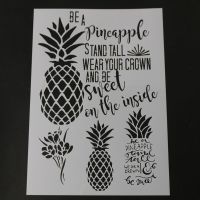 BE A
Pineapple
STAND TALL
WEAR YOUR CROWN
AND BE
sweet
on the inside
be a
PINEAPPLE
stand
tall
WEAR A
CROWN
& be
sweet